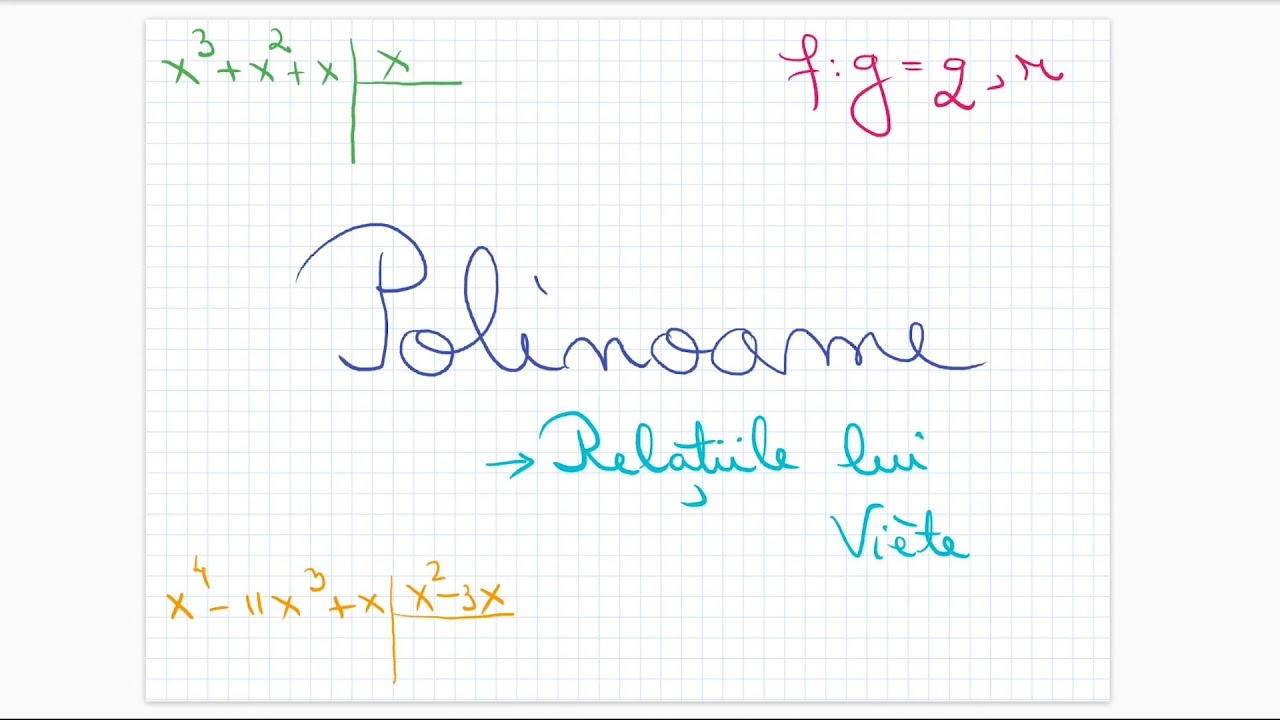 x³ + x² + x | x
f : g = q, r
Polinoame
→ Relațiile lui
Viète
x⁴ - 11x³ + x | x² - 3x